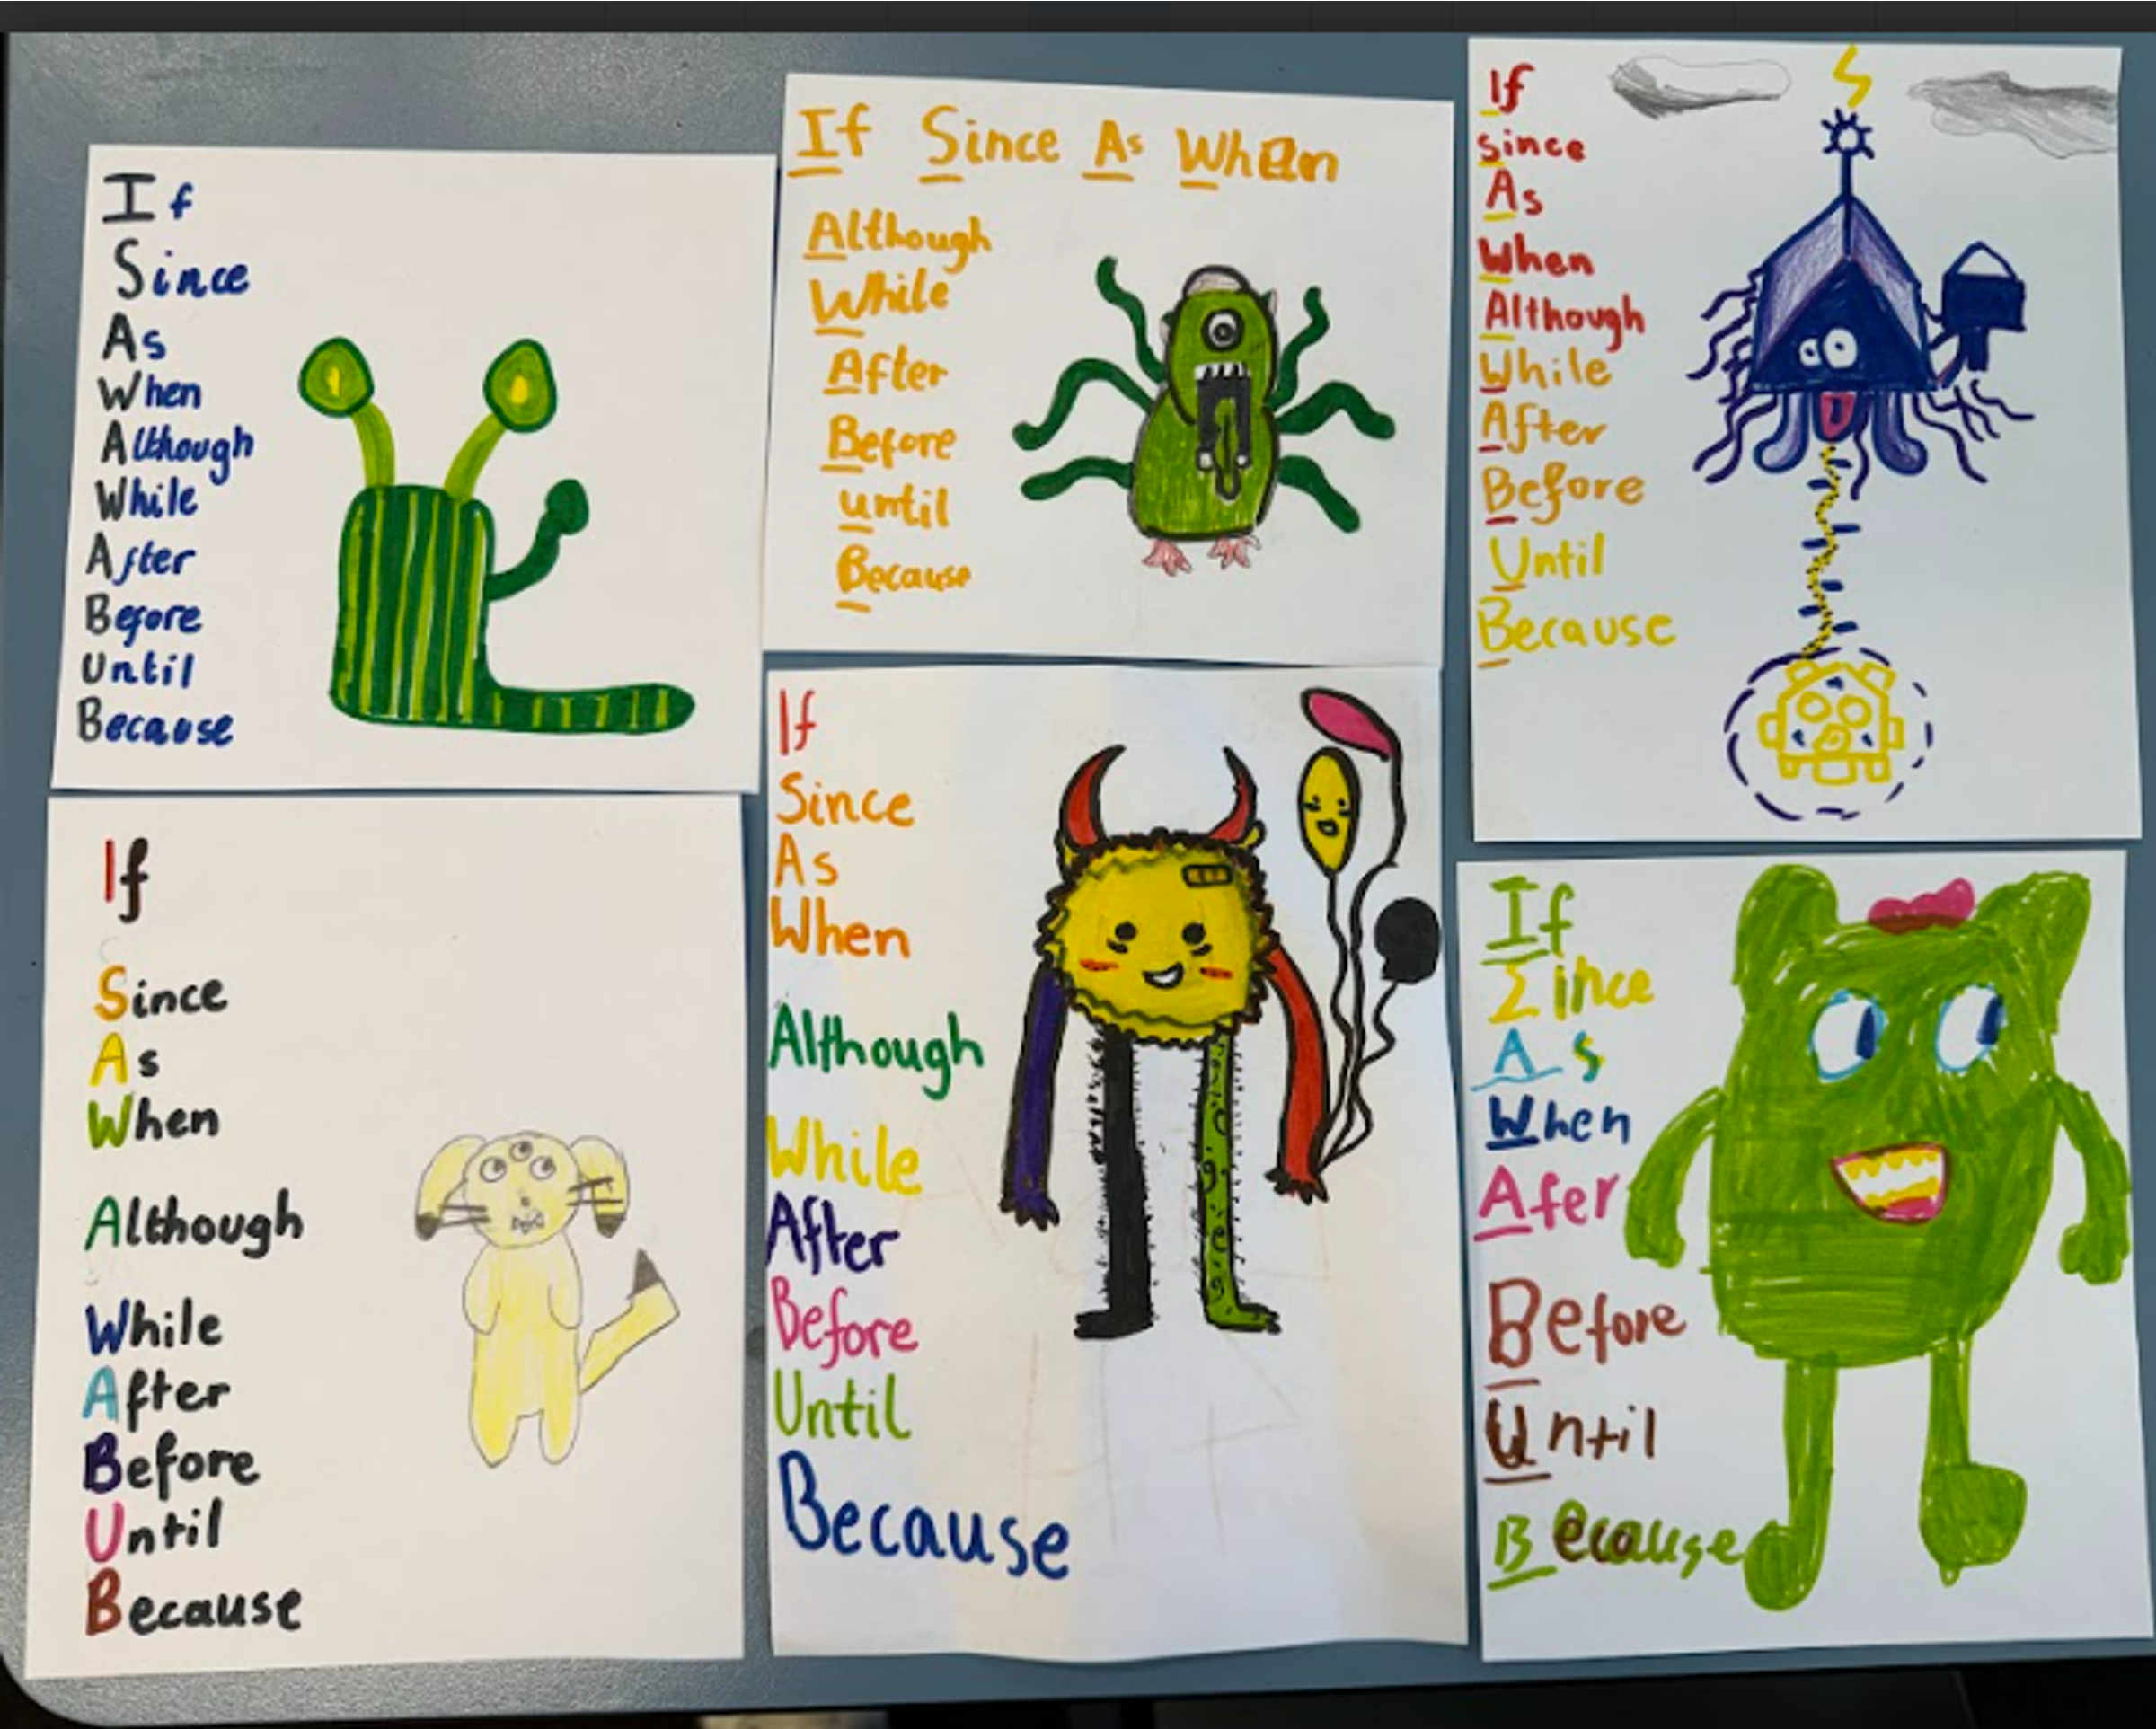 If
Since
As
When
Although
While
After
Before
Until
Because
If Since As When
Although
While
After
Before
until
Because
If
since
As
When
Although
While
After
Before
Until
Because
If
Since
As
When
Although
While
After
Before
Until
Because
If
Since
As
When
Although
While
After
Before
Until
Because
If
Since
As
When
Afer
Before
Until
Because